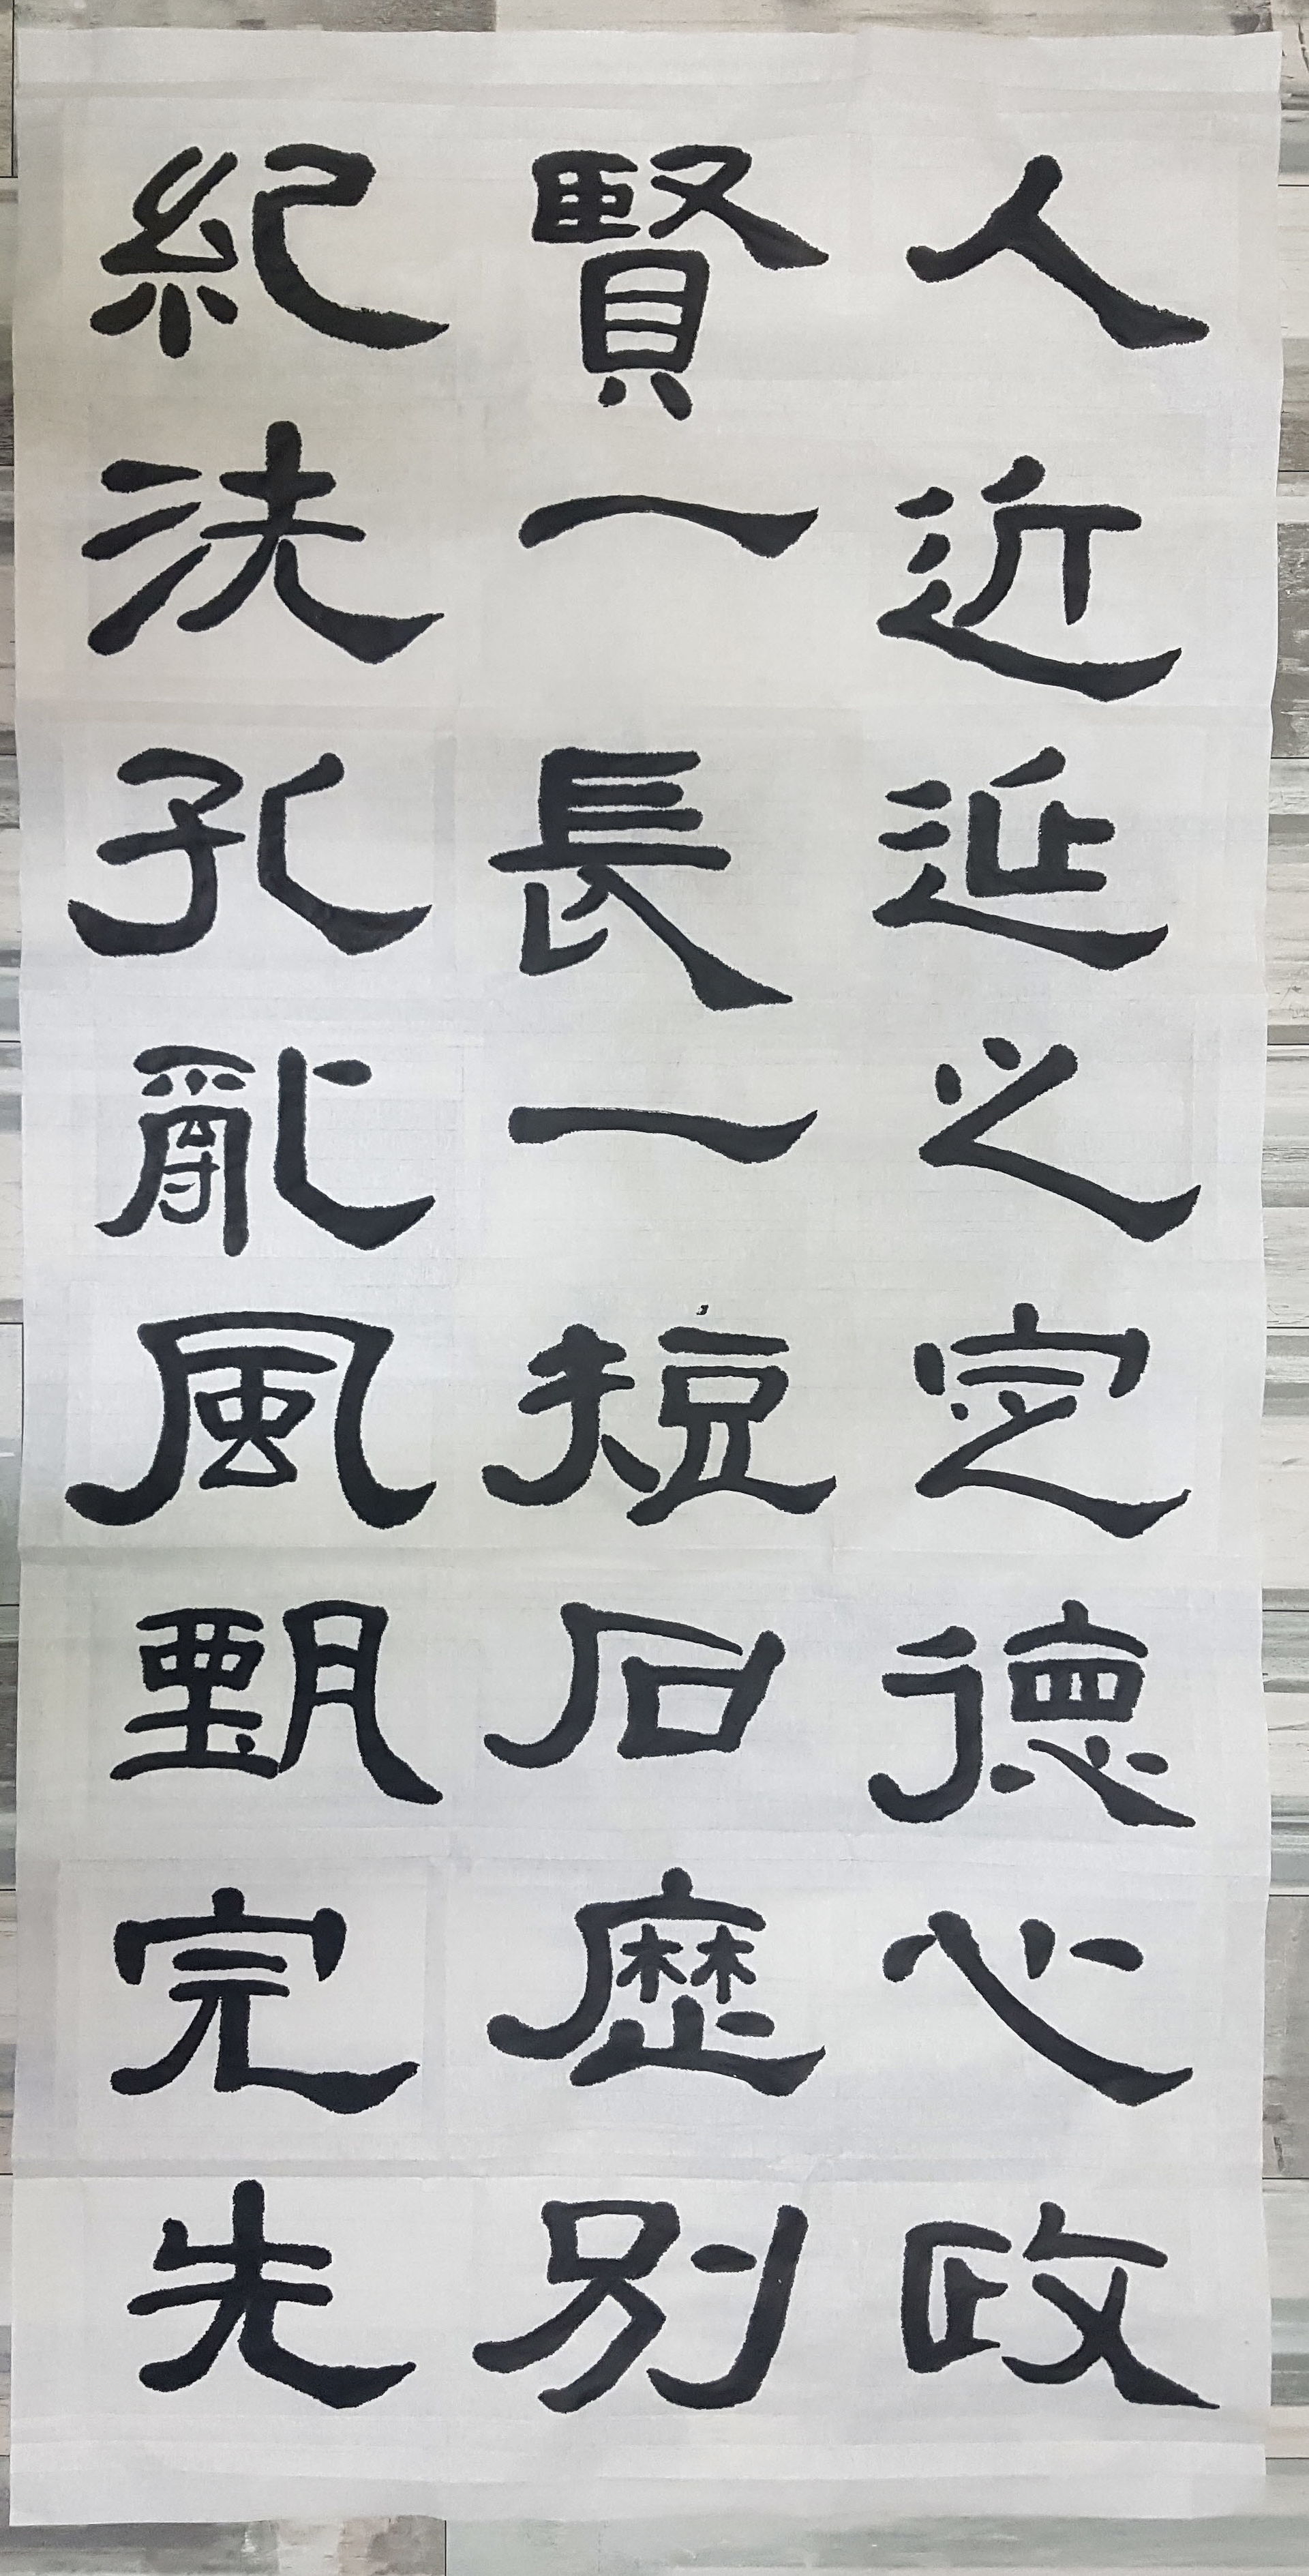 人近延之定德心政
賢一長一短石歷別
紀洗孔亂風甄完先